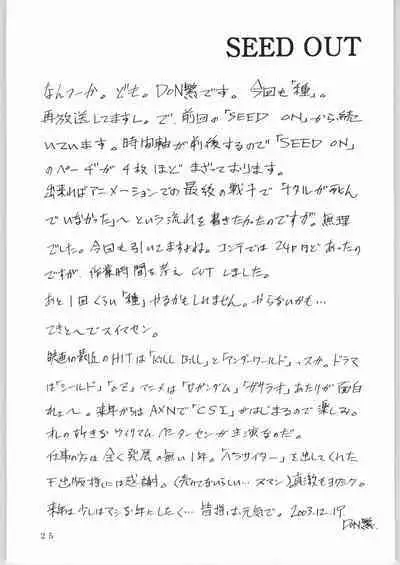 SEED OUT
なんつーか。ども。DON繁です。今回も「種」。
再放送してますし。で、前回の「SEED ON」から続
いています。時間軸が前後するので「SEED ON」
のページが4枚ほどまざっております。
出来ればアニメーションでの最後の戦斗で「ナタルが死ん
でいなかった」へという流れを書きたかったのですが。無理
でした。今回も引いてますよね。コンテでは24Pほどあったの
ですが、作業時間を考えCUTしました。
あと1回くらい「種」やるかもしれません。やらないかも…
てきとーでスイマセン。
映画の最近のHITは「KILL BILL」と「アンダーワールド」っスか。ドラマ
は「シールド」「OZ」アニメは「Ζガンダム」「ガサラキ」あたりが面白
れェー。来年からはAXNで「CSI」がはじまるので楽しみ。
オレの好きなウイリアム ピーターセンが主演なのだ。
仕事の方は全く発展の無い1年。「パラサイター」を出してくれた
出版様には感謝。(売れてないらしい…スマン)
来年は少しはマシな年にしたく…皆様はお元気で。2003.12.19
DON繁.
25